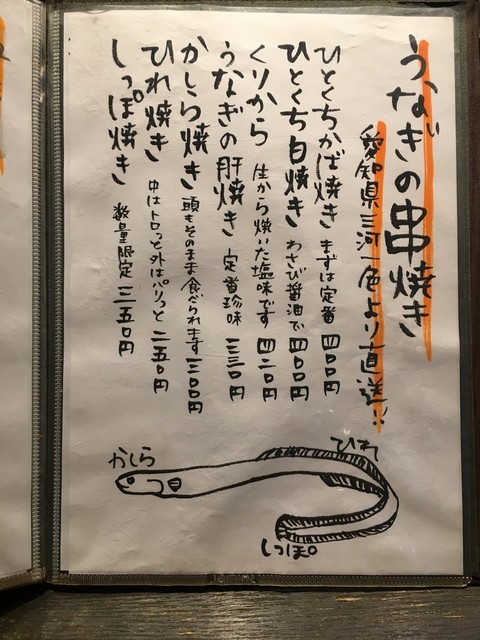 うなぎの串焼き
愛知県三河一色より直送!!
ひとくちかば焼き まずは定番 四〇〇円
ひとくち白焼き わさび醤油で 四〇〇円
くりから 生から焼いた塩味です 四二〇円
うなぎの肝焼き 定番珍味 三三〇円
かしら焼き 頭もそのまま食べられます 三〇〇円
ひれ焼き 中はトロっと外はパリっと 二五〇円
しっぽ焼き 数量限定 三五〇円
かしら
ひれ
しっぽ